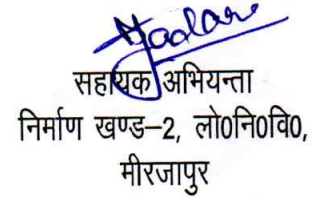 सहायक अभियन्ता
निर्माण खण्ड–2, लो0नि0वि0,
मीरजापुर